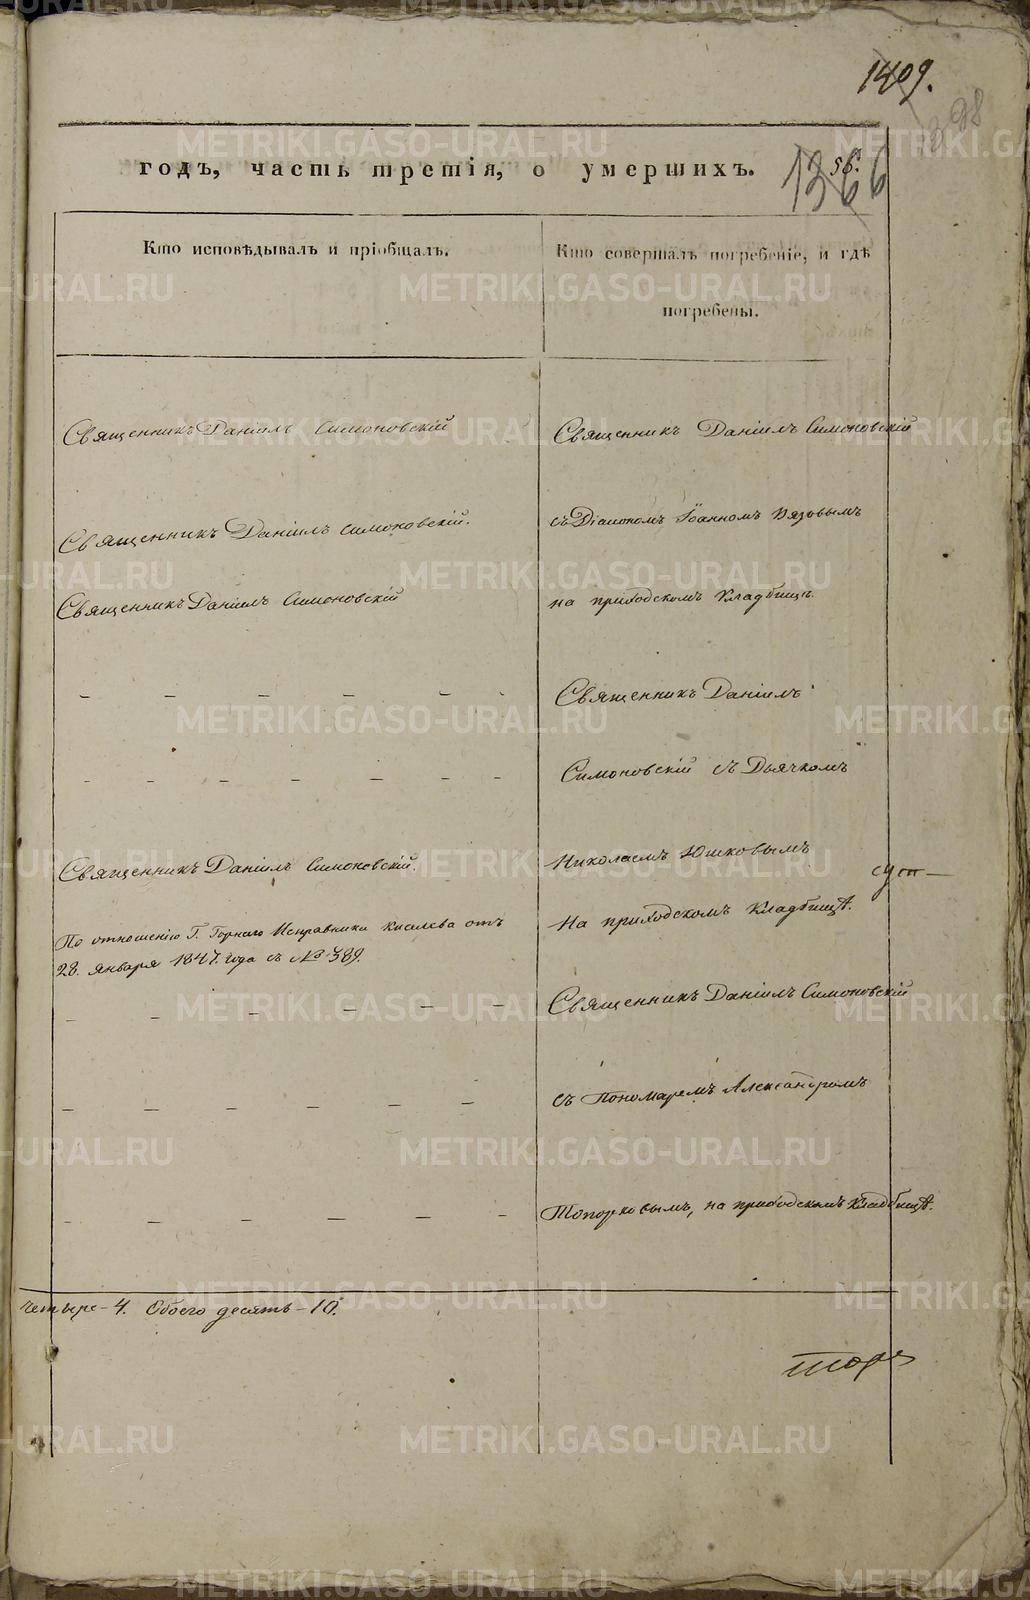 1409.
398
годъ, часть третія, о умершихъ.
56.
1366
Кто исповѣдывалъ и пріобщалъ.
Кто совершалъ погребеніе, и гдѣ
погребены.
Священникъ Даніилъ Симоновскій
Священникъ Даніилъ Симоновскій
Священникъ Даніилъ Симоновскій.
съ Діакономъ Іоанномъ Вязовымъ
Священникъ Даніилъ Симоновскій
на приходскомъ Кладбищѣ.
Священникъ Даніилъ
Симоновскій съ Дьячкомъ
Священникъ Даніилъ Симоновскій.
Николаемъ Юшковымъ
На приходскомъ Кладбищѣ.
По отношенію Г. Горнаго Исправника Киселева отъ
28. января 1847. года съ № 389.
Священникъ Даніилъ Симоновскій
съ Пономаремъ Александромъ
Топорковымъ, на приходскомъ Кладбищѣ.
четыре - 4. Обоего десять - 10.
METRIKI.GASO-URAL.RU